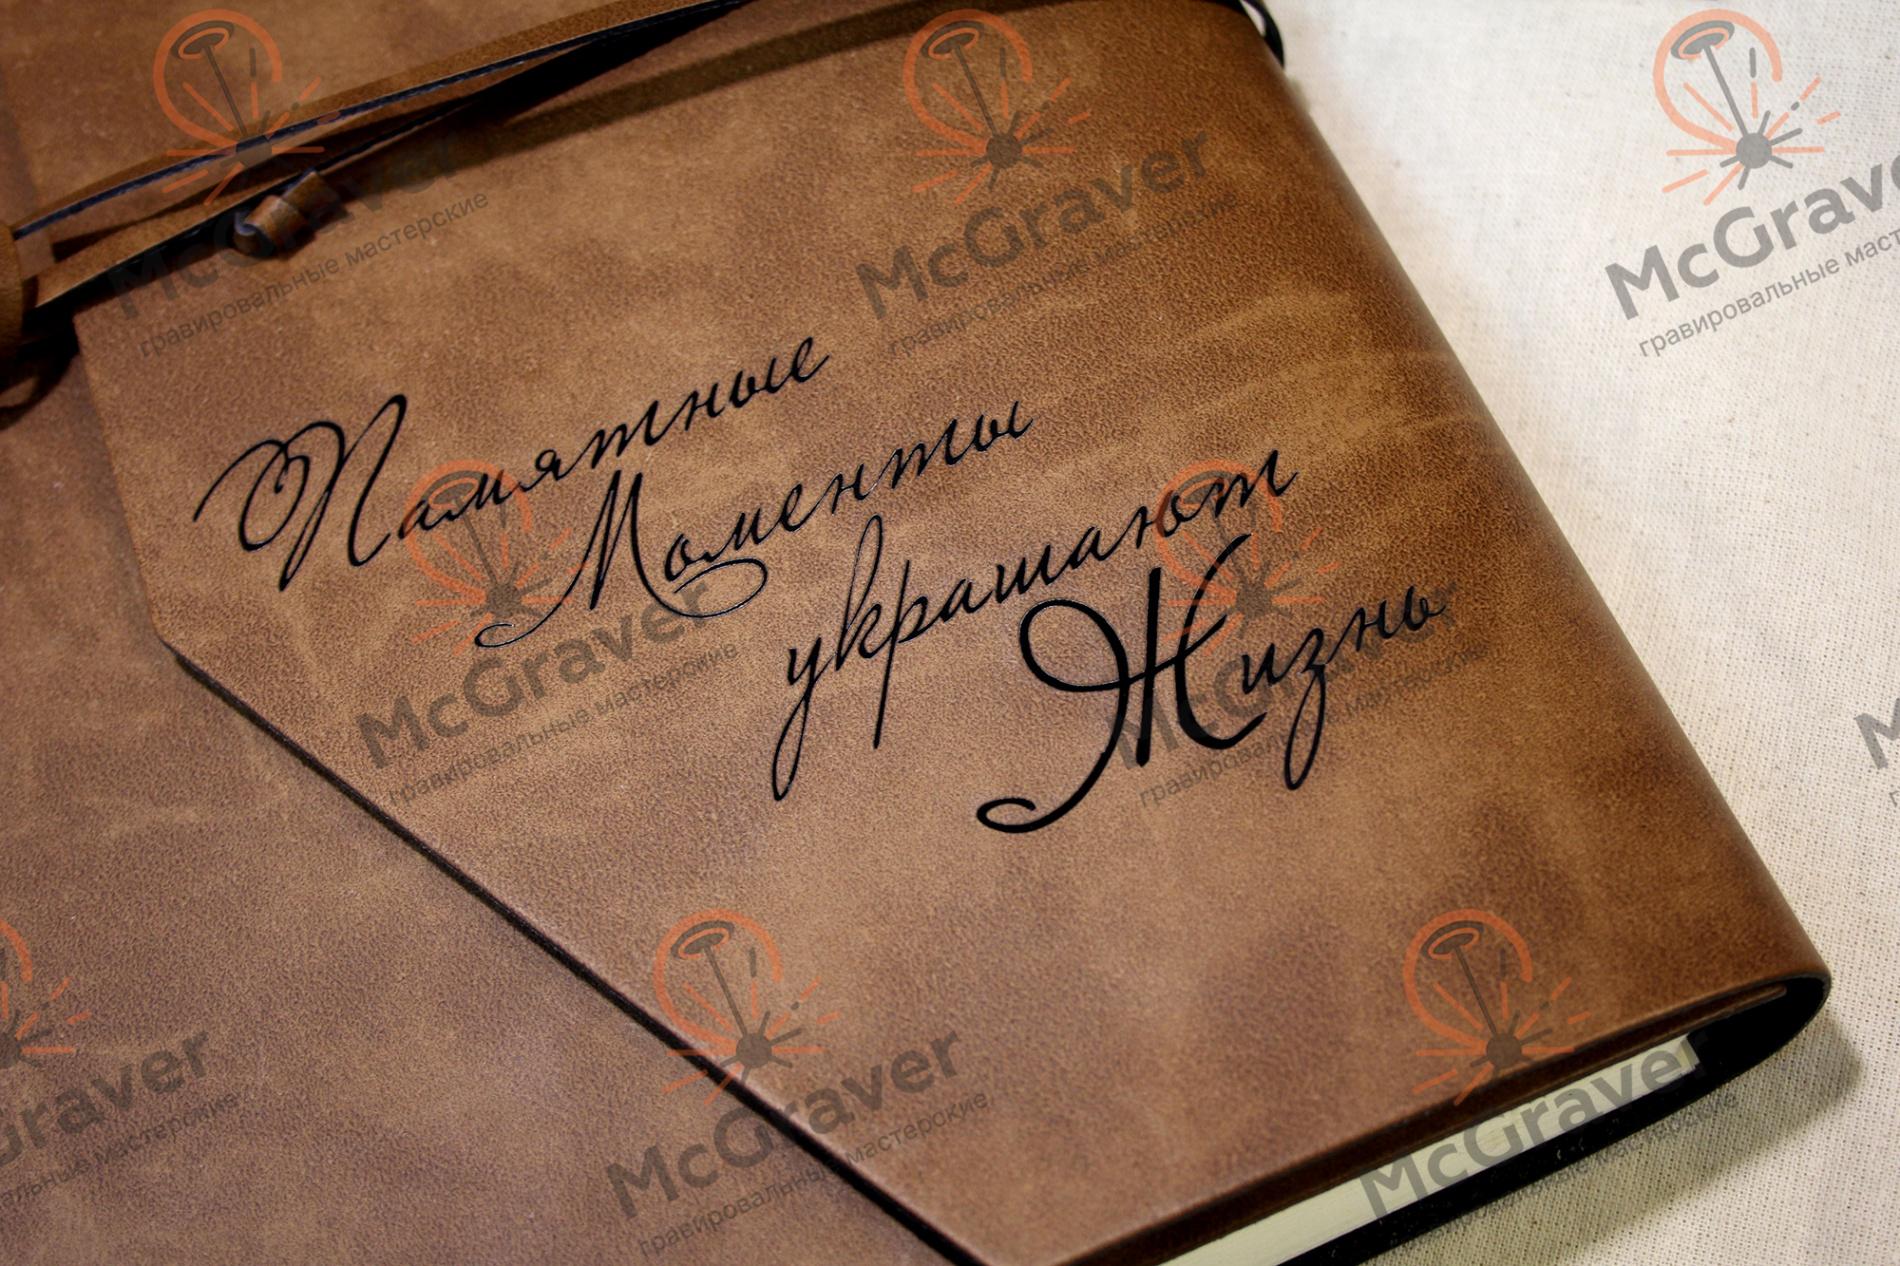 Памятные
Моменты
украшают
Жизнь
McGraver
гравировальные мастерские